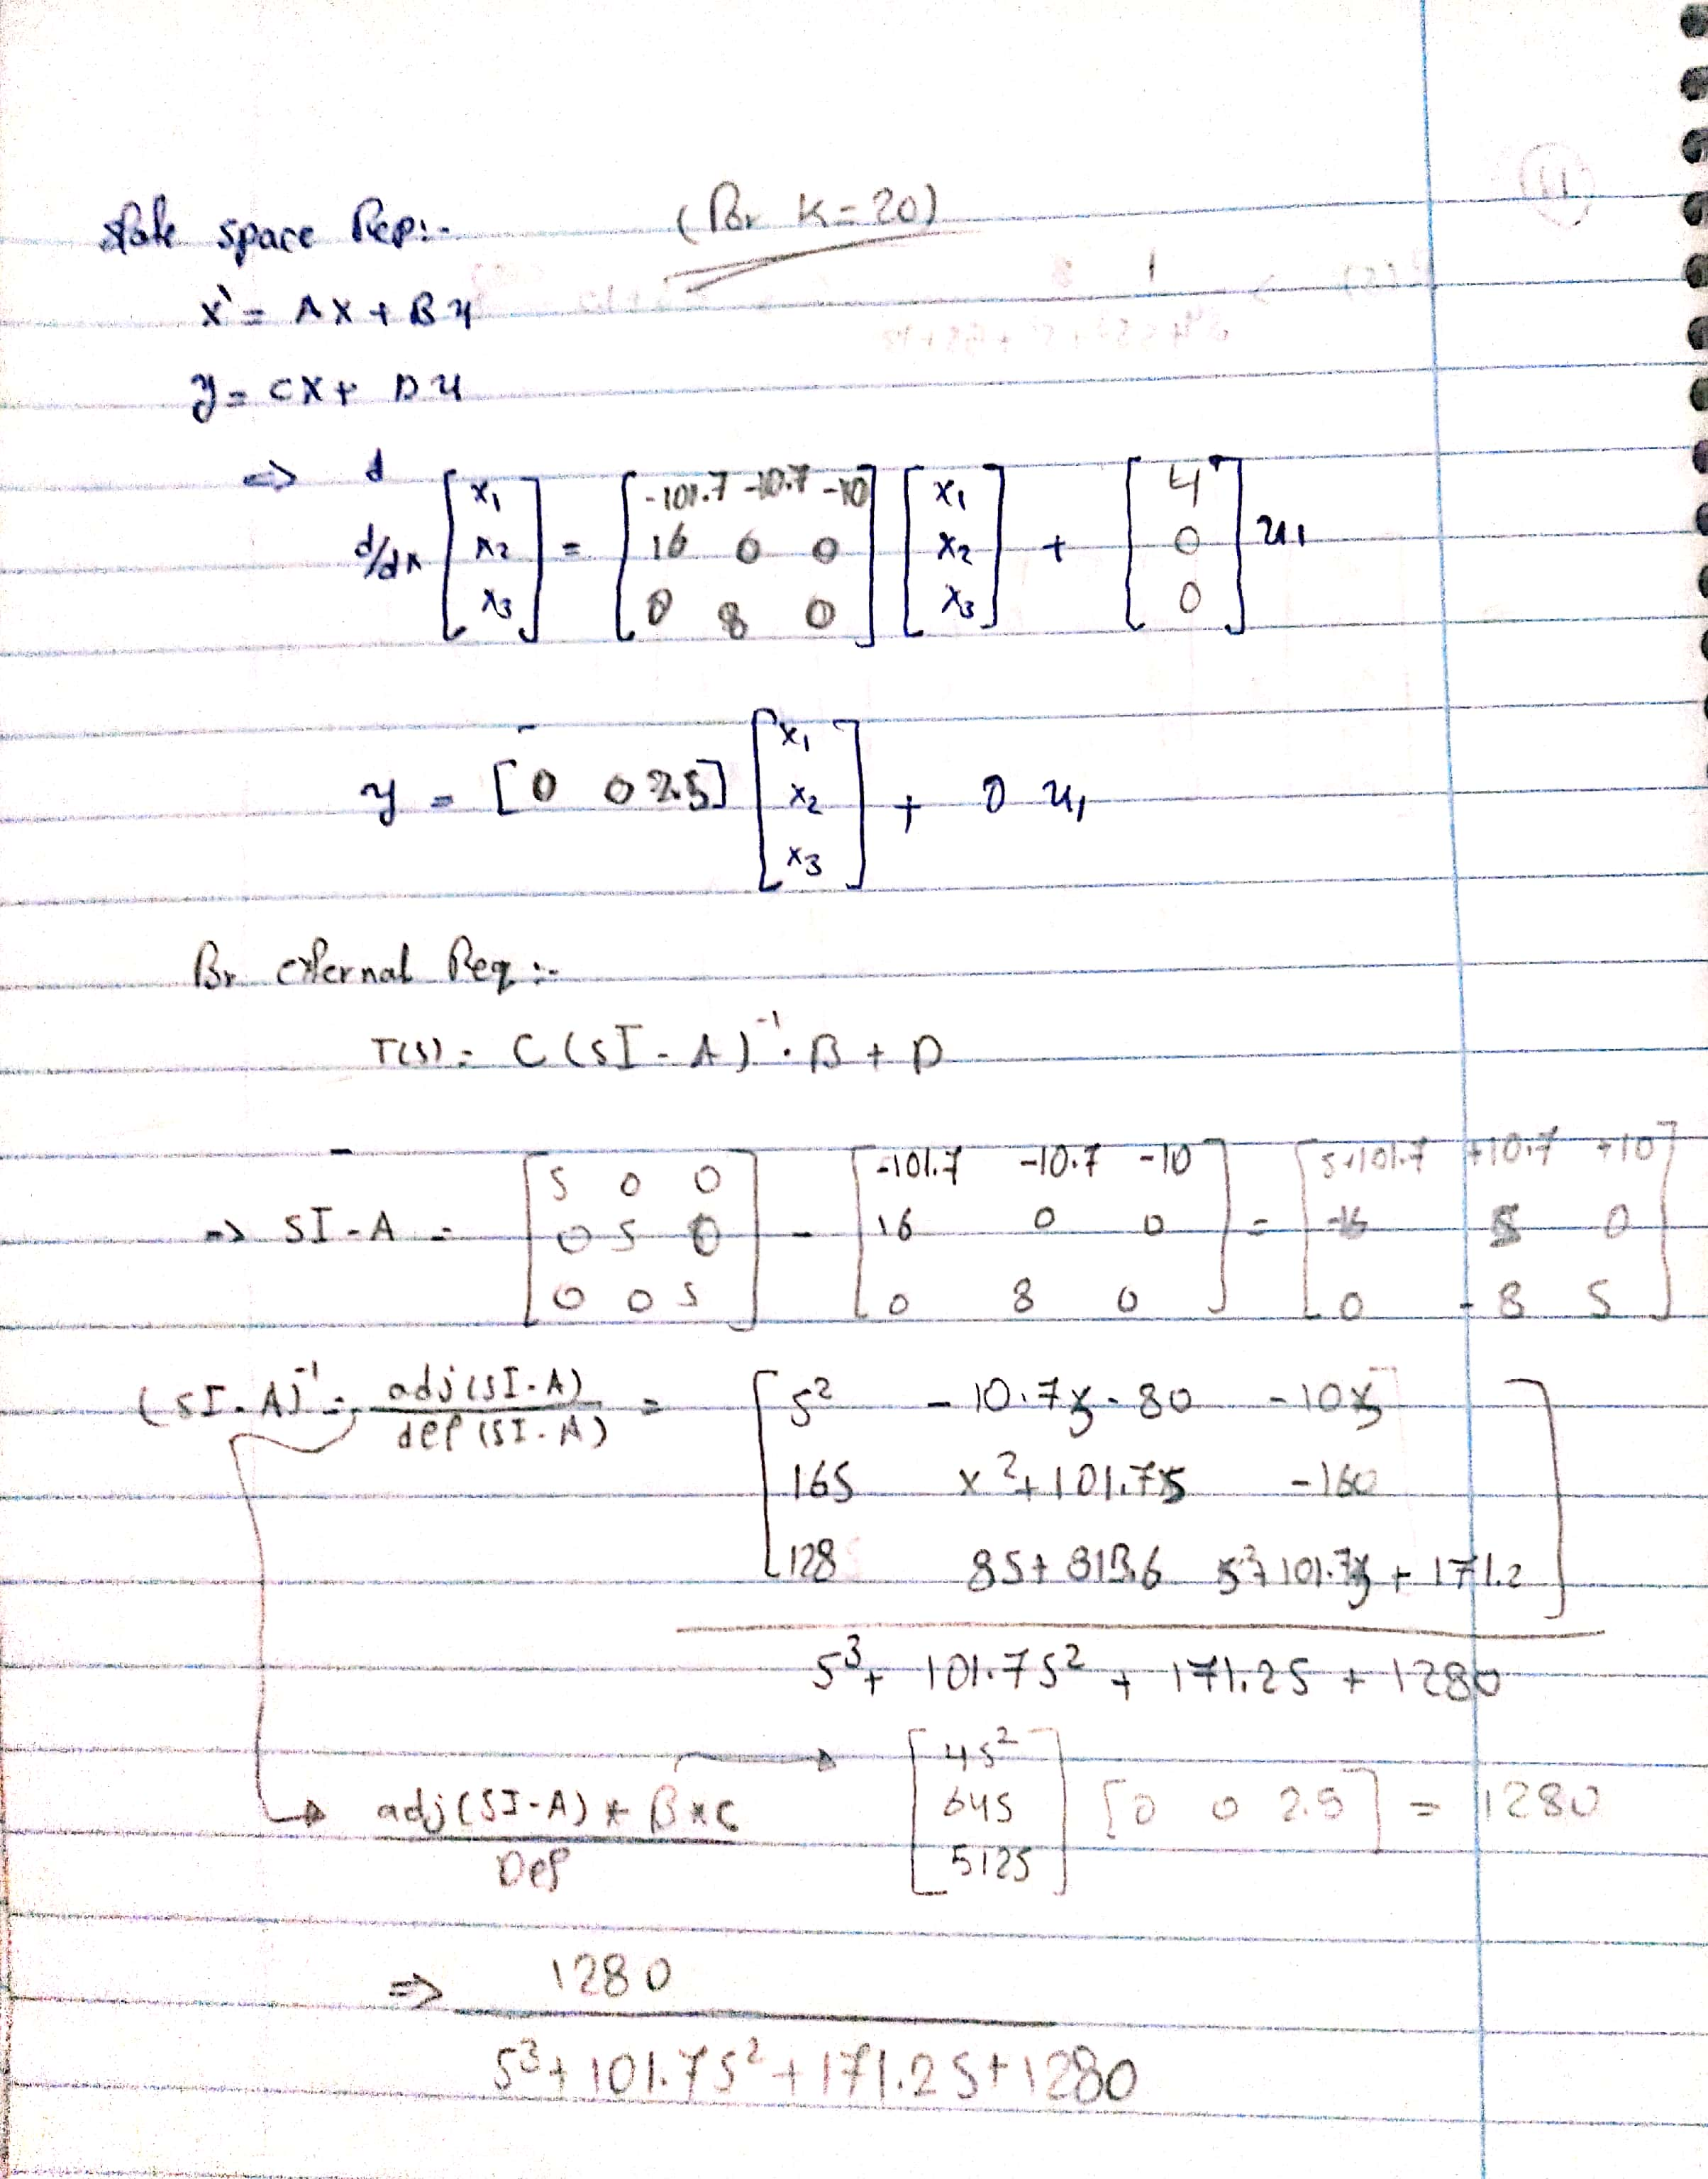 state space Rep:- (For K=20)
x' = Ax + Bu
y = cx + Du
=> d
d/dx [x1 x2 x3] = [-101.7 -10.7 -10; 16 0 0; 0 8 0] [x1 x2 x3] + [4 0 0] u1
y = [0 0 2.5] [x1 x2 x3] + 0 u1
For external Req:-
T(s) = C(sI - A)^-1 . B + D
=> sI - A = [s 0 0; 0 s 0; 0 0 s] - [-101.7 -10.7 -10; 16 0 0; 0 8 0] = [s+101.7 +10.7 +10; -16 s 0; 0 -8 s]
(sI - A)^-1 = adj(sI-A) / det(sI-A) = [s^2 -10.7s-80 -10s; 16s x^2+101.7s -160; 128 8s+813.6 s^2+101.7s+171.2]
s^3 + 101.7s^2 + 171.2s + 1280
adj(sI-A) * B*C / Det [4s^2 64s 512s] [0 0 2.5] = 1280
=> 1280
s^3 + 101.7s^2 + 171.2s + 1280